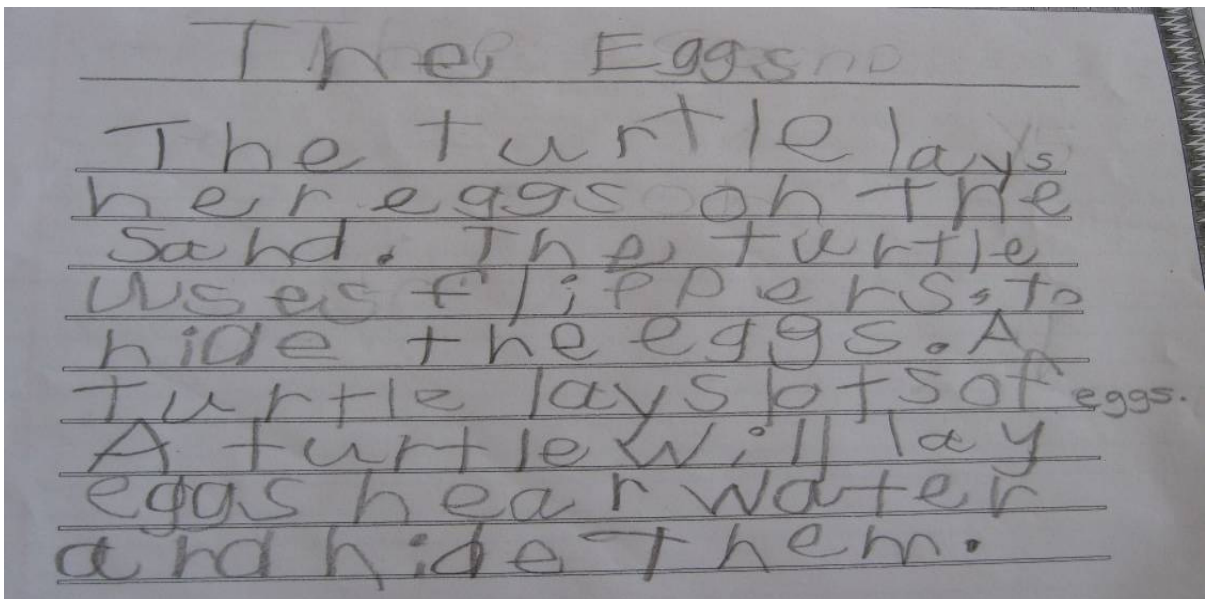 The Eggs
The turtle lays
her eggs on the
sand. The turtle
uses flippers to
hide the eggs. A
turtle lays lots of eggs.
A turtle will lay
eggs near water
and hide them.